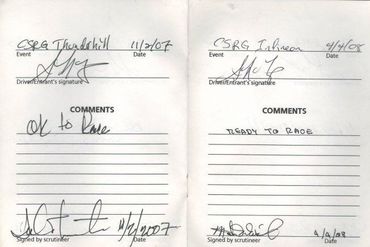 CSRG Thunderhill 11/2/07
Event Date
Driver/Entrant's signature
COMMENTS
OK to Race
11/2/2007
Signed by scrutineer Date
CSRG Infineon 4/4/08
Event Date
Driver/Entrant's signature
COMMENTS
READY TO RACE
Signed by scrutineer Date